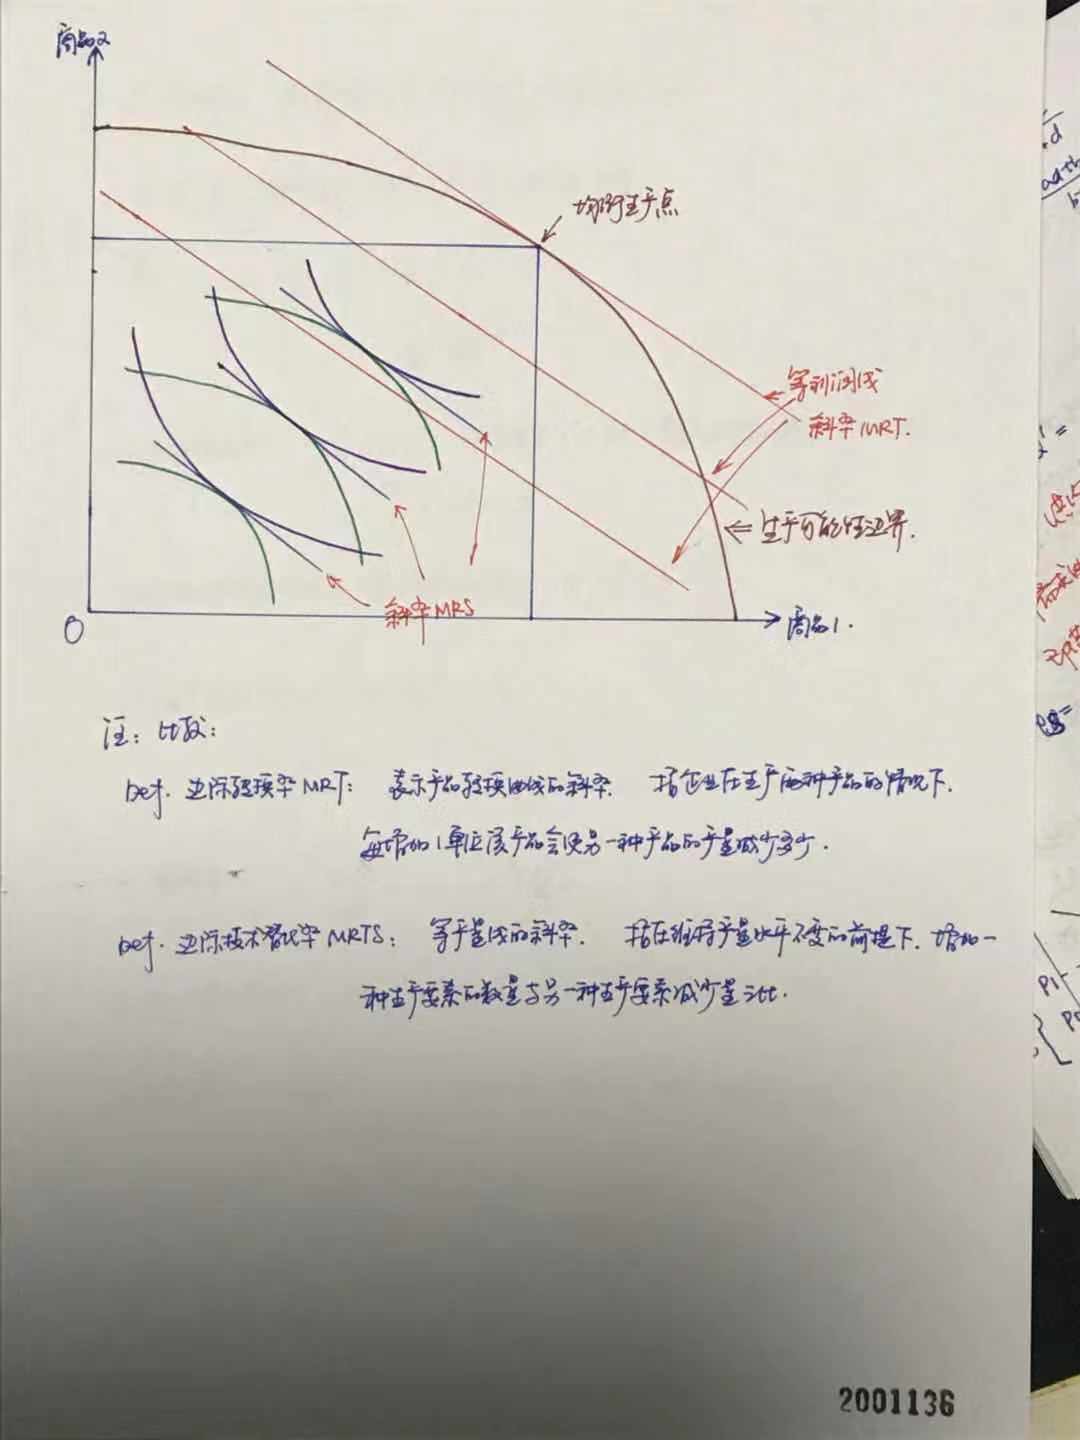 商品2
均衡生产点
等利润线
斜率MRT.
⇐ 生产可能性边界.
斜率MRS
O
商品1.
注: 比较:
def. 边际转换率MRT: 表示产品转换曲线的斜率. 指企业在生产两种产品的情况下.
每增加1单位该产品会使另一种产品的产量减少多少.
def. 边际技术替代率MRTS: 等产量线的斜率. 指在维持产量水平不变的前提下. 增加一
种生产要素的数量与另一种生产要素减少量之比.
2001136